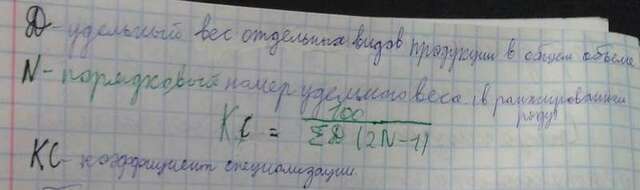 Д - удельный вес отдельных видов продукции в общем объёме
N - порядковый номер удельного веса (в ранжированном ряду)
Кс = 100 / ΣД (2N-1)
КС - коэффициент специализации